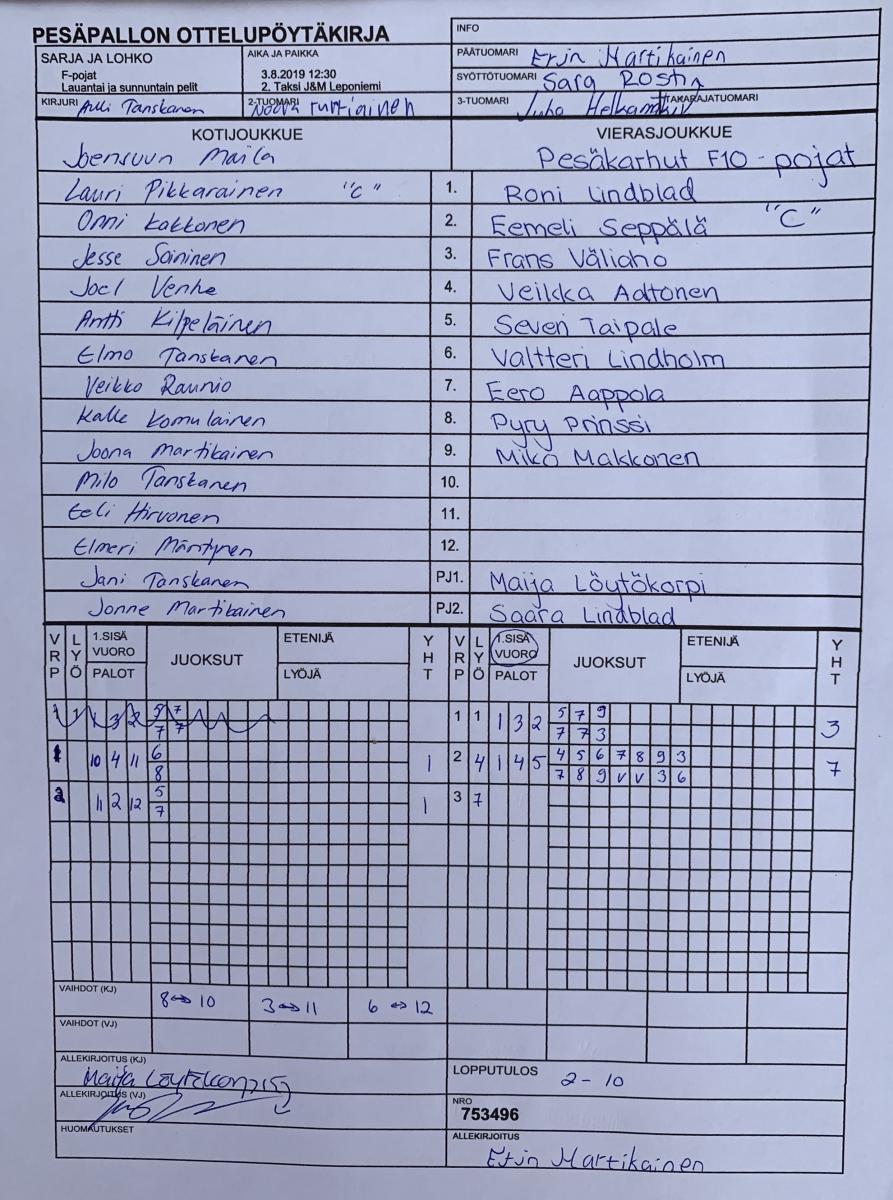 PESÄPALLON OTTELUPÖYTÄKIRJA
INFO
SARJA JA LOHKO
F-pojat
Lauantai ja sunnuntain pelit
AIKA JA PAIKKA
3.8.2019 12:30
2. Taksi J&M Leponiemi
PÄÄTUOMARI Erin Martikainen
SYÖTTÖTUOMARI Sara Rostin
KIRJURI Tanskanen
2-TUOMARI
3-TUOMARI Juho
TAKARAJATUOMARI
KOTIJOUKKUE
VIERASJOUKKUE
Joensuun Maila
Pesäkarhut F10 - pojat
Lauri Pikkarainen "C" 1. Roni Lindblad
Onni Kakkonen 2. Eemeli Seppälä "C"
Jesse Soininen 3. Frans Väliaho
Joel Venhe 4. Veikka Aaltonen
Antti Kilpeläinen 5. Severi Taipale
Elmo Tanskanen 6. Valtteri Lindholm
Veikko Raunio 7. Eero Aappola
Kalle Komulainen 8. Pyry Prinssi
Joona Martikainen 9. Miko Makkonen
Milo Tanskanen 10.
Eeli Hirvonen 11.
Elmeri Mäntynen 12.
Jani Tanskanen PJ1. Maija Löytökorpi
Jonne Martikainen PJ2. Saara Lindblad
VRP LYÖ 1.SISÄ VUORO PALOT JUOKSUT ETENIJÄ LYÖJÄ YHT VRP LYÖ 1.SISÄ VUORO PALOT JUOKSUT ETENIJÄ LYÖJÄ YHT
1 1 1 3 2 5 7 1 1 1 3 2 5 7 9 3
7 7 7 7 3
1 10 4 11 6 1 2 4 1 4 5 4 5 6 7 8 9 3 7
8 7 8 9 V V 3 6
2 11 2 12 5 1 3 7
7
VAIHDOT (KJ) 8↔10 3↔11 6↔12
VAIHDOT (VJ)
ALLEKIRJOITUS (KJ) Maija Löytökorpi
LOPPUTULOS 2-10
ALLEKIRJOITUS (VJ)
NRO
753496
HUOMAUTUKSET
ALLEKIRJOITUS
Erin Martikainen